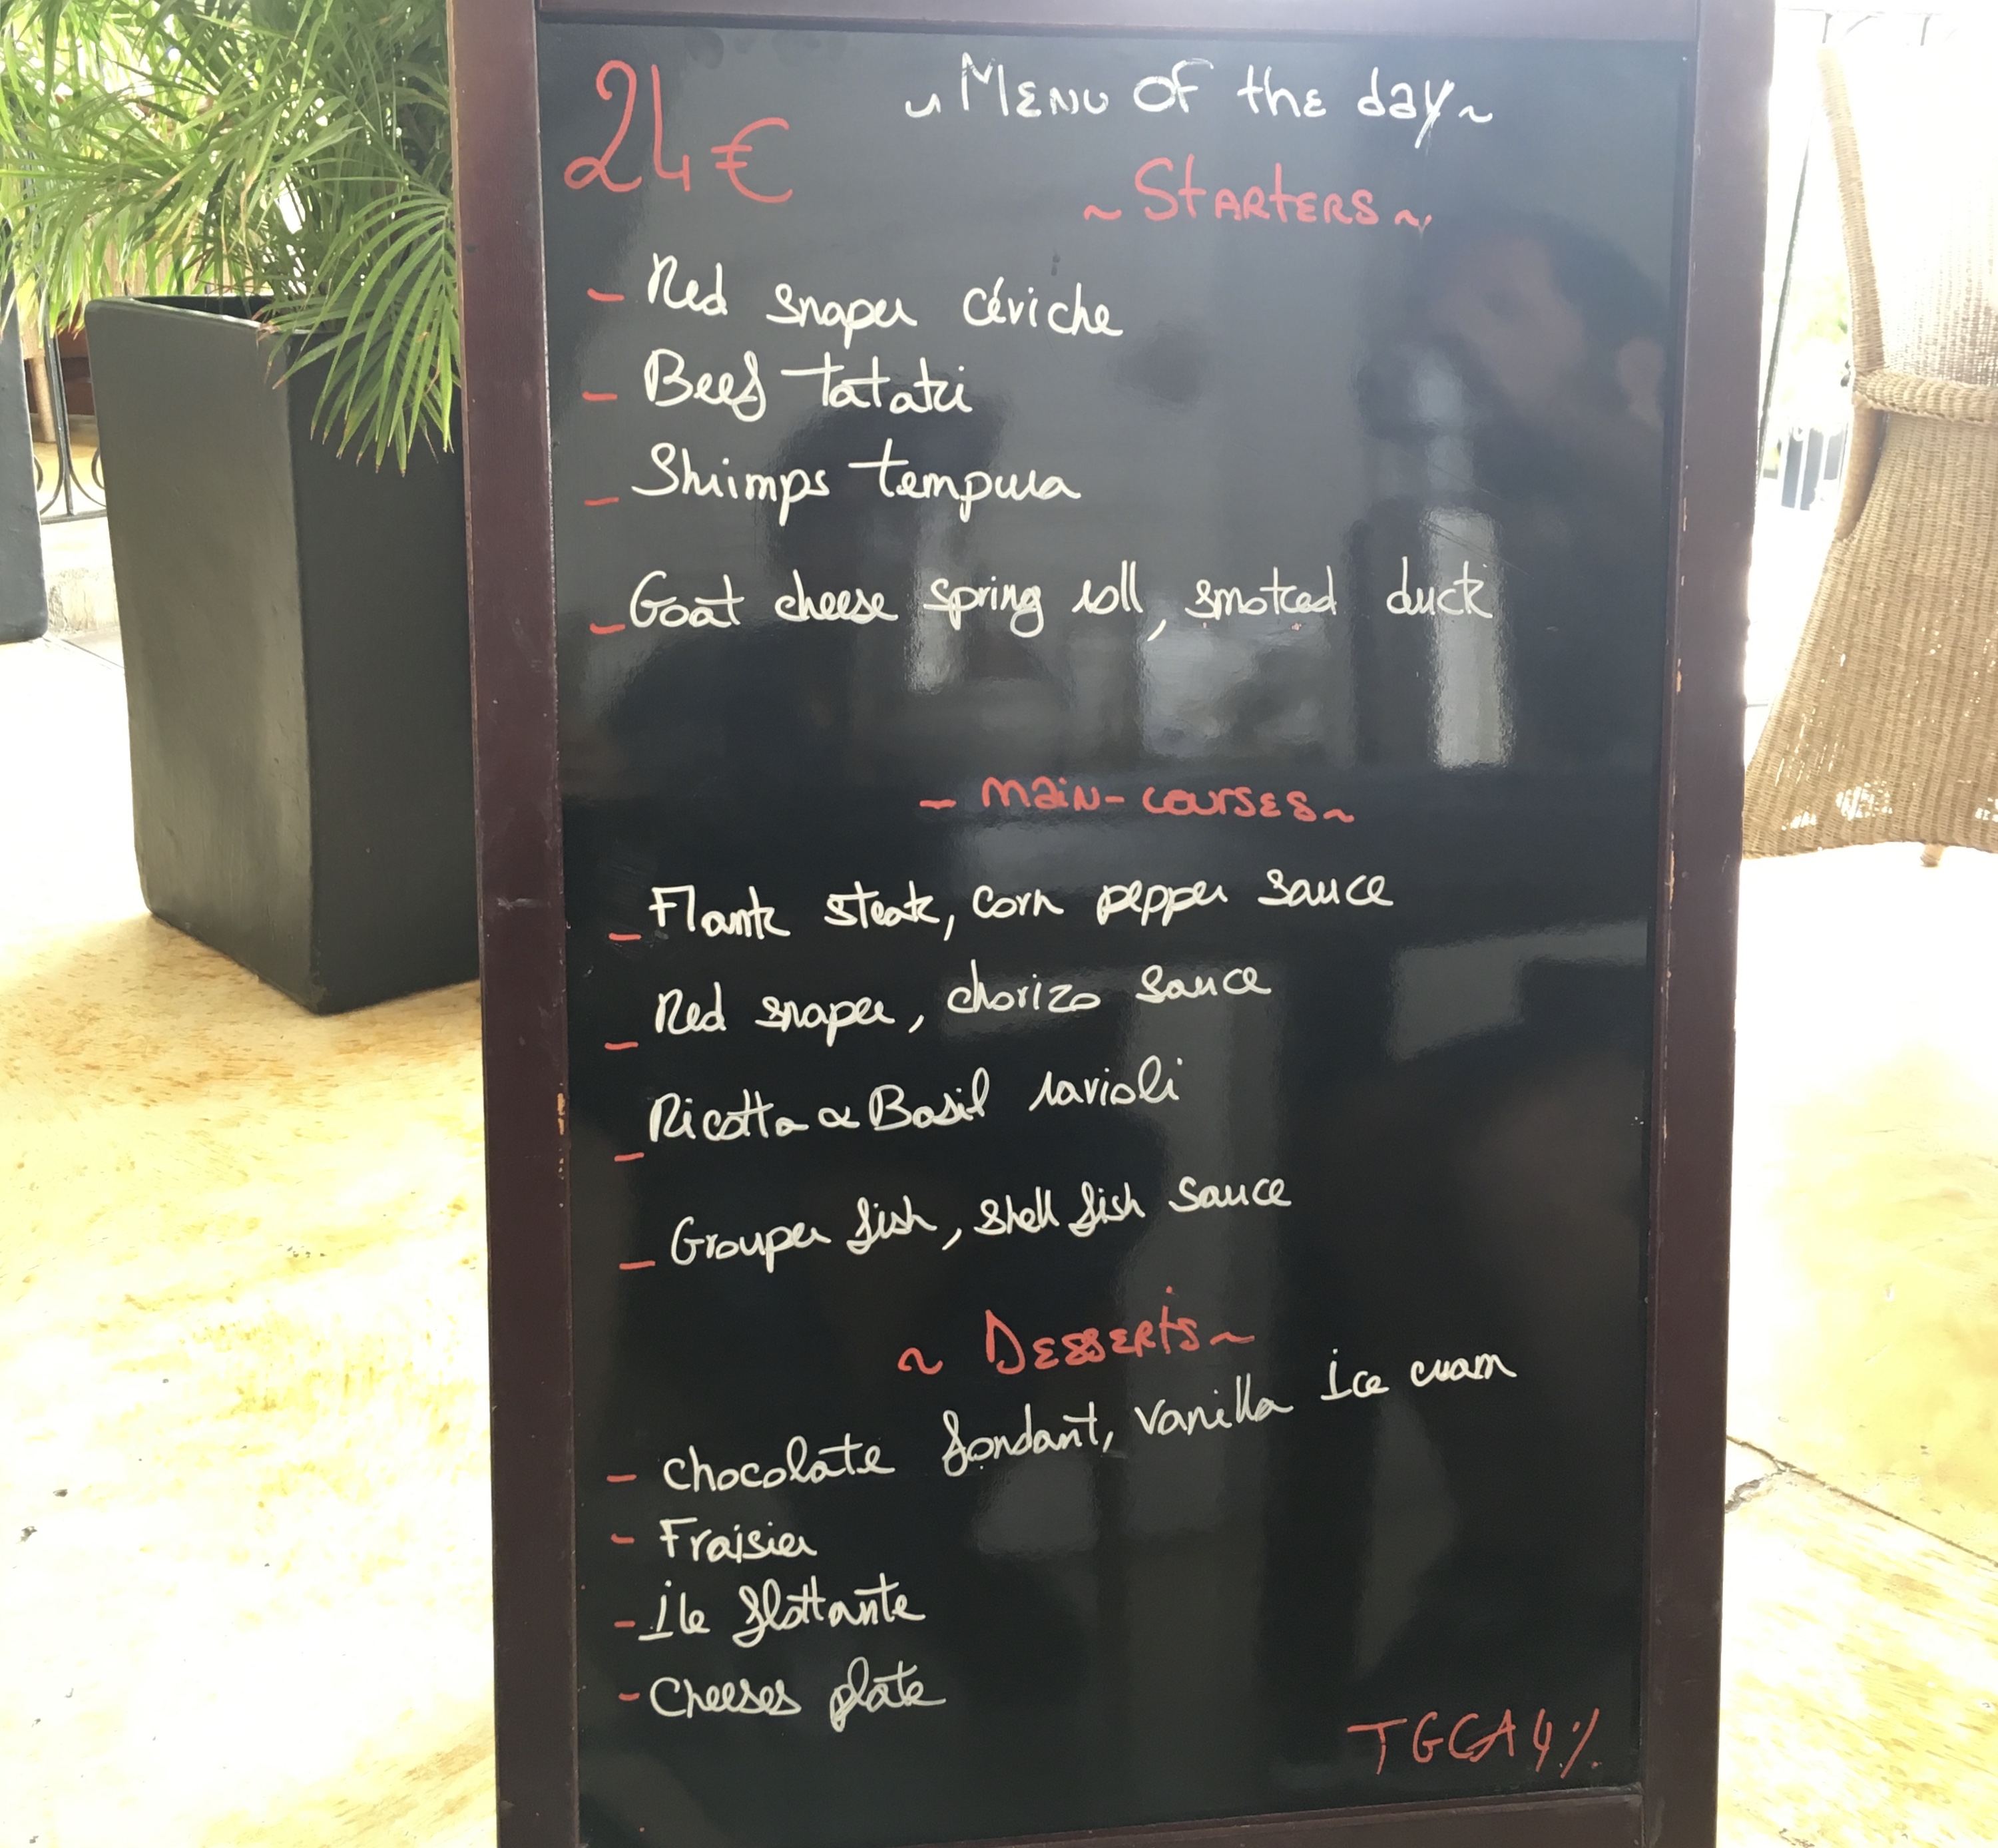 24€
~ Menu of the day ~
~ Starters ~
- Red snaper céviche
- Beef tataki
- Shrimps tempura
- Goat cheese spring roll, smoked duck
- Main-courses ~
- Flank steak, corn pepper sauce
- Red snaper, chorizo sauce
- Ricotta & Basil ravioli
- Grouper fish, shell fish sauce
~ Desserts ~
- chocolate fondant, vanilla Ice cream
- Fraisier
- Ile flottante
- Cheeses plate
TGCA 4%